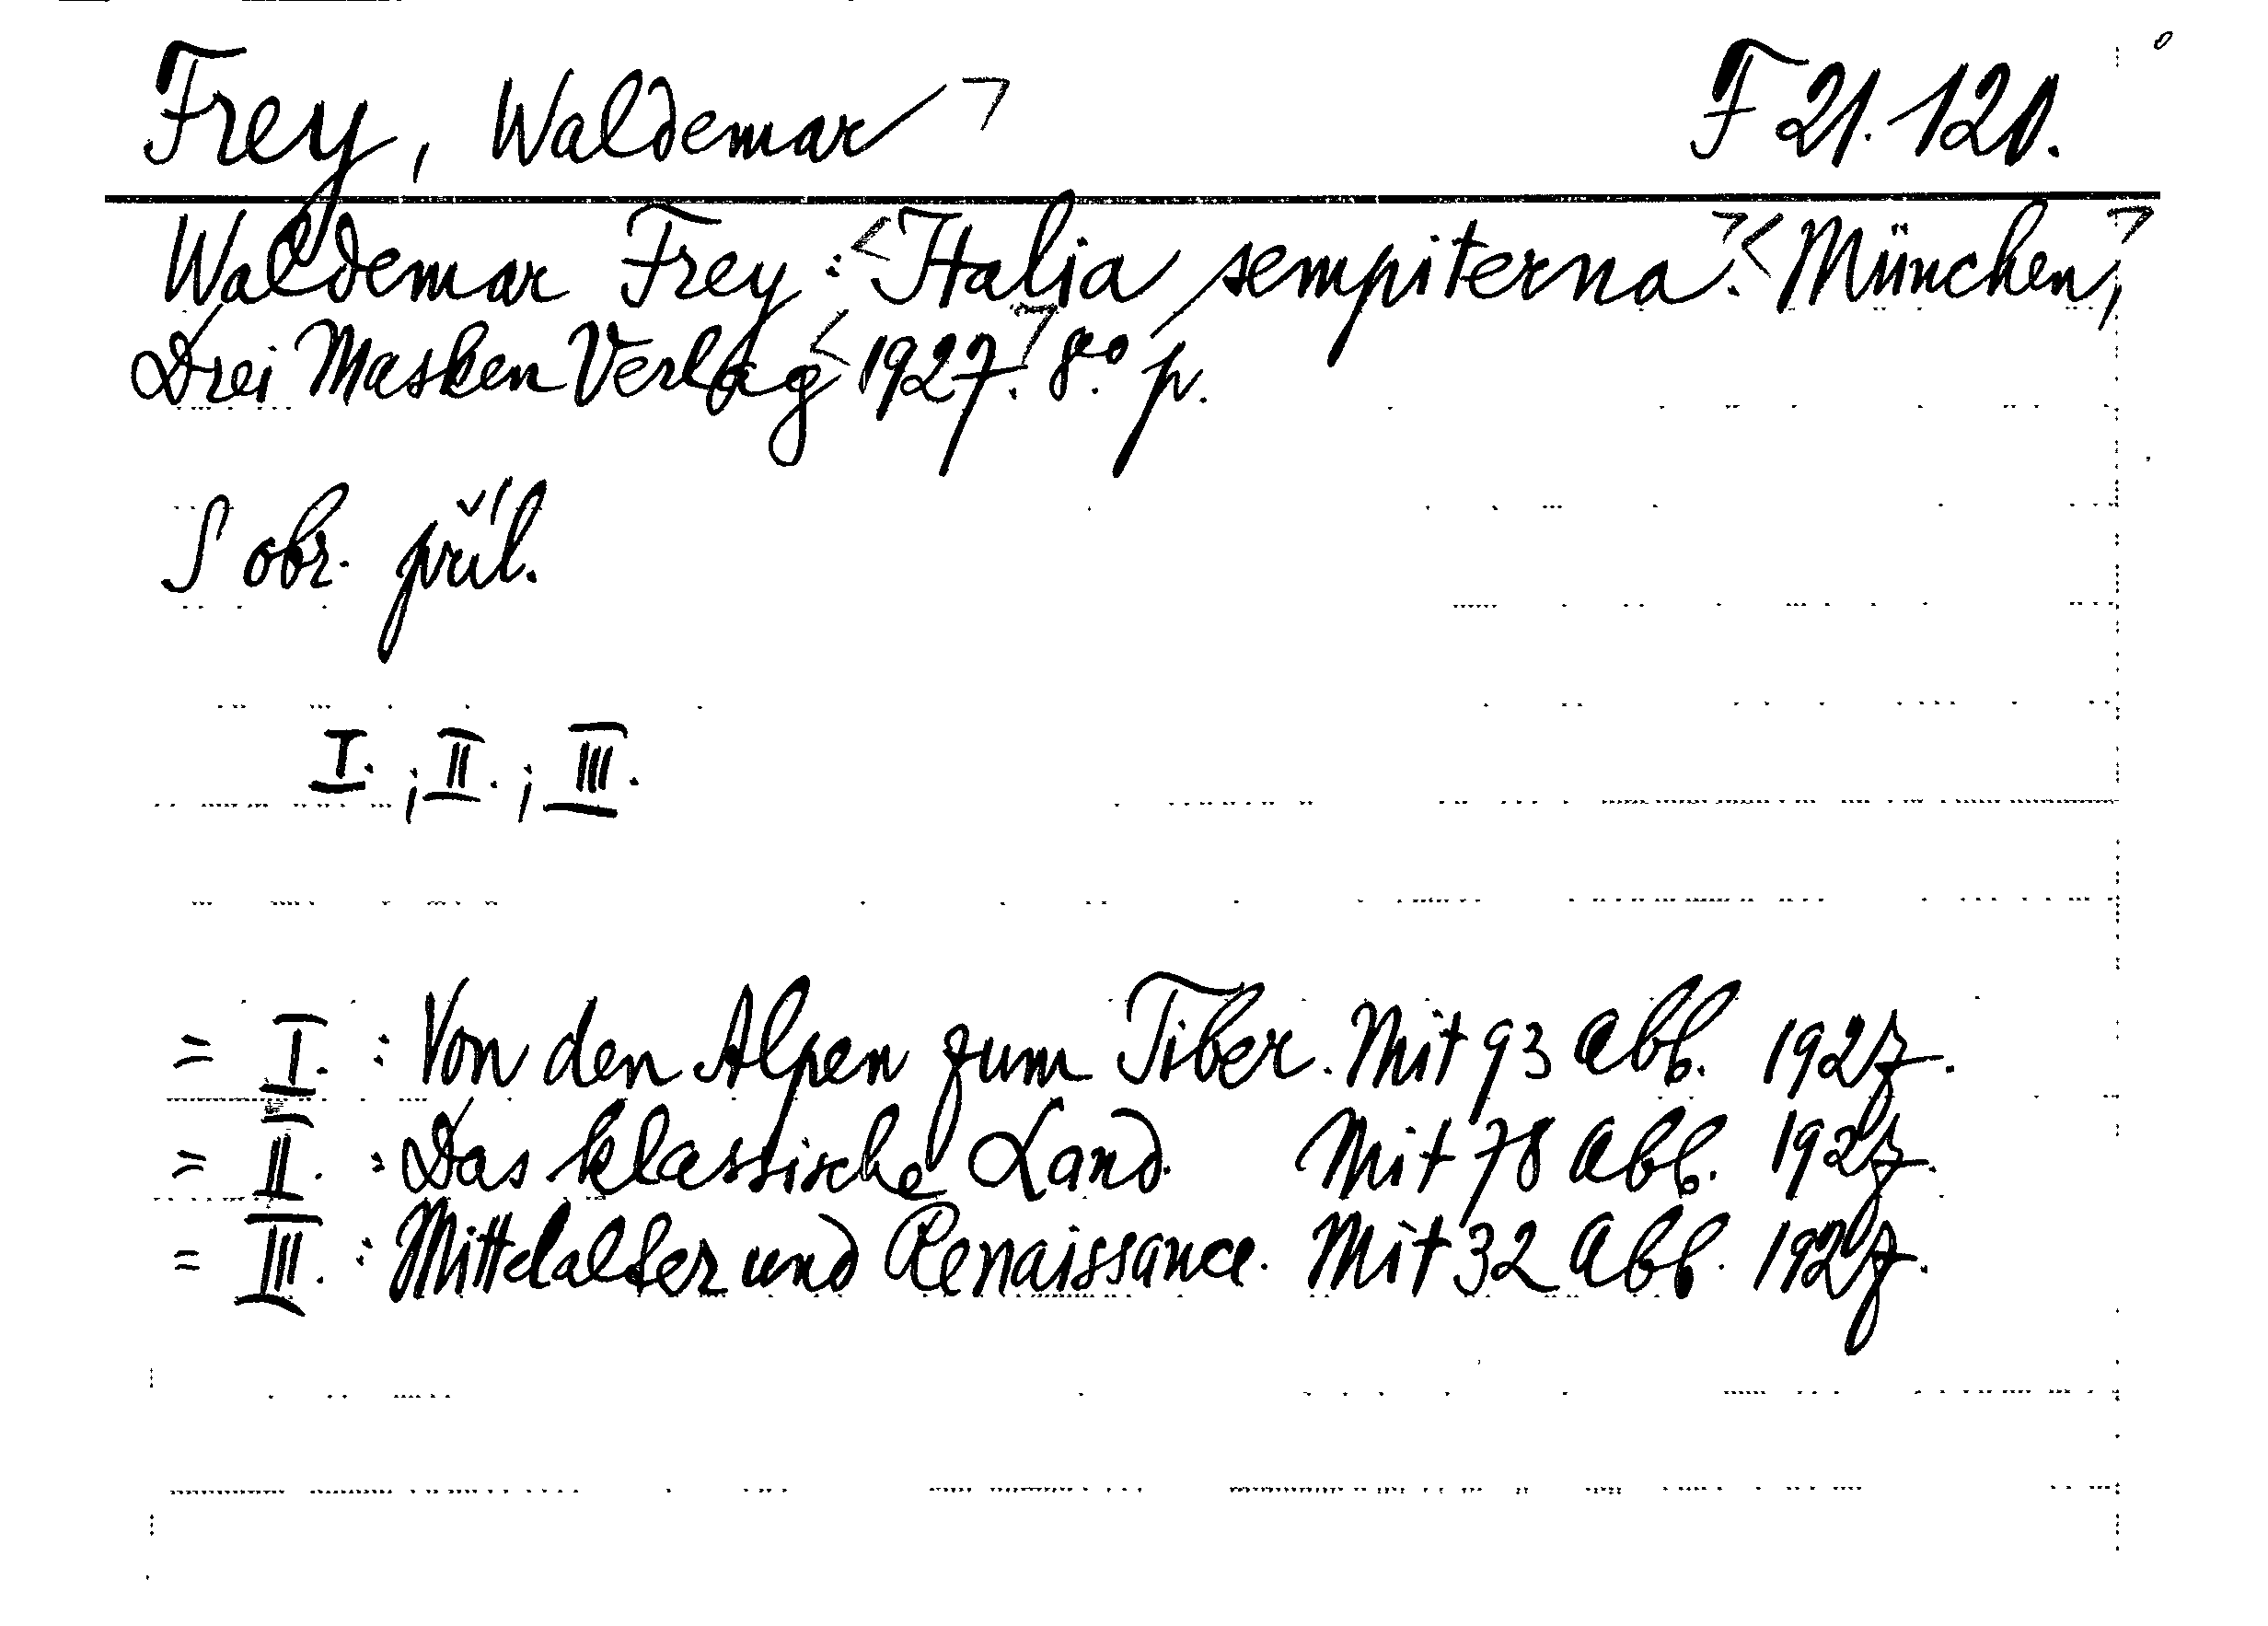 Frey, Waldemar
F 21.120.
Waldemar Frey: Italia sempiterna. München,
Drei Masken Verlag 1927. 8° p.
S obr. příl.
I.; II.; III.
= I. : Von den Alpen zum Tiber. Mit 93 Abb. 1927.
= II. : Das klassische Land. Mit 78 Abb. 1927.
= III. : Mittelalter und Renaissance. Mit 32 Abb. 1927.